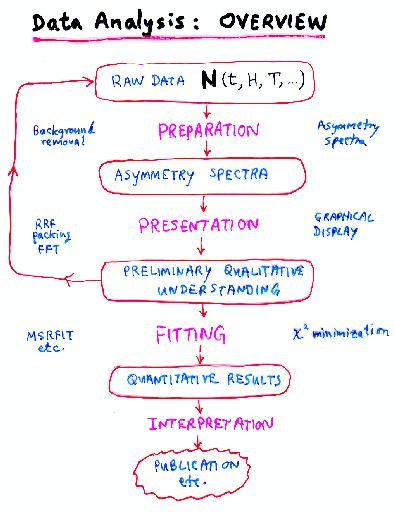 Data Analysis: OVERVIEW
RAW DATA N(t, H, T, ...)
Background removal
PREPARATION
Asymmetry spectra
ASYMMETRY SPECTRA
RRF packing FFT
PRESENTATION
GRAPHICAL DISPLAY
PRELIMINARY QUALITATIVE
UNDERSTANDING
MSRFIT etc.
FITTING
χ² minimization
QUANTITATIVE RESULTS
INTERPRETATION
PUBLICATION
etc.